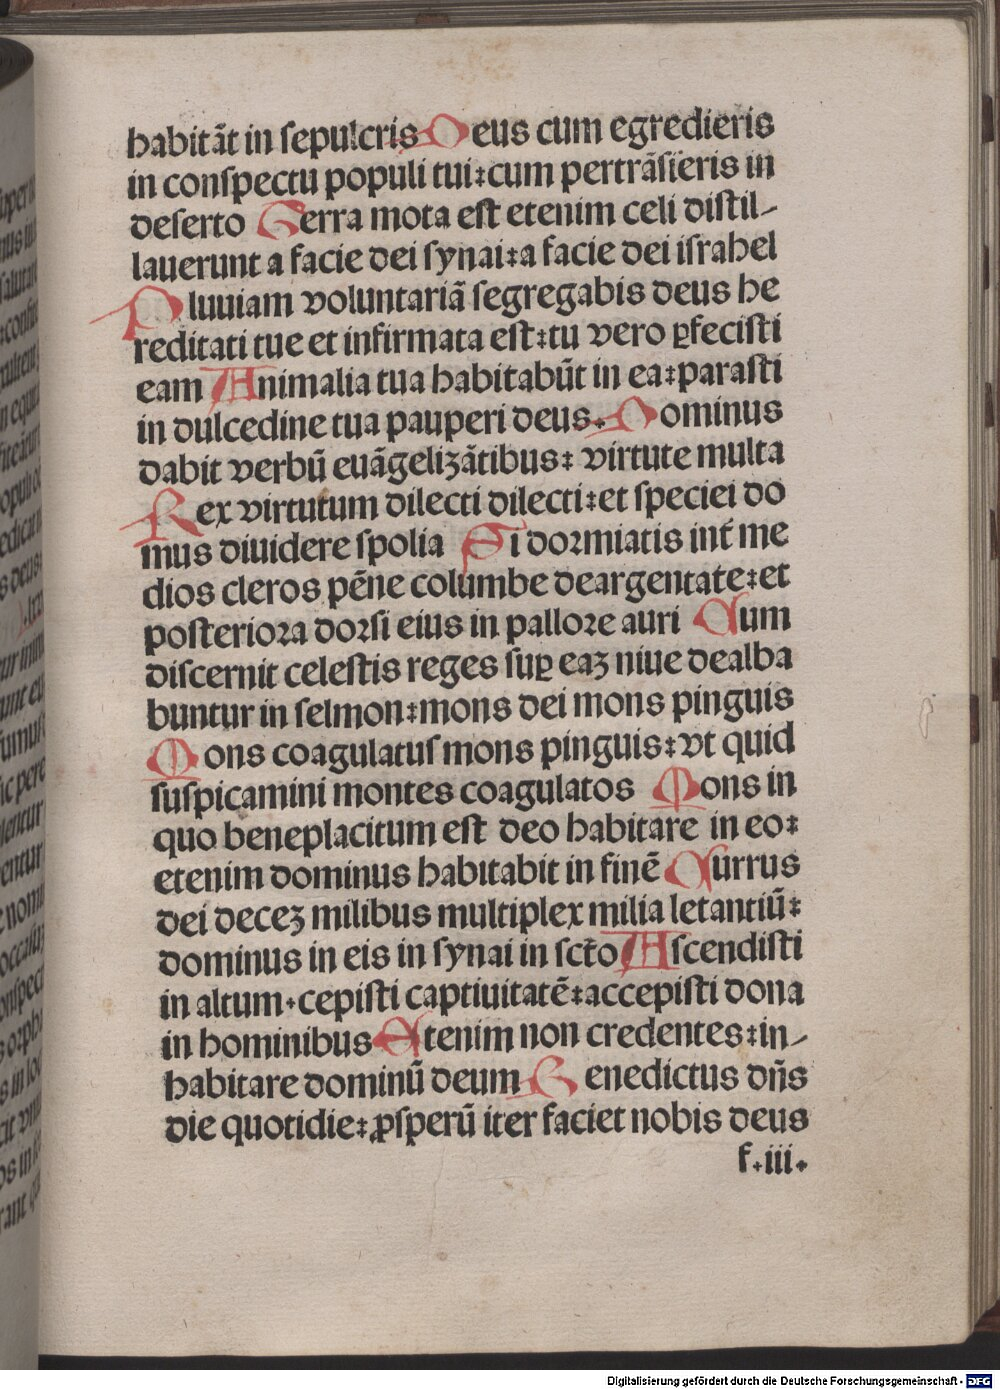 habitāt in sepulcris Deus cum egredieris
in conspectu populi tui: cum pertrāsieris in
deserto Terra mota est etenim celi distil-
lauerunt a facie dei synai: a facie dei israhel
Pluuiam voluntariā segregabis deus he
reditati tue et infirmata est: tu vero ꝑfecisti
eam Animalia tua habitabūt in ea: parasti
in dulcedine tua pauperi deus. Dominus
dabit verbū euāgelizātibus: virtute multa
Rex virtutum dilecti dilecti: et speciei do
mus diuidere spolia Si dormiatis int̄ me
dios cleros pēne columbe deargentate: et
posteriora dorsi eius in pallore auri Cum
discernit celestis reges suꝑ eaꝫ niue dealba
buntur in selmon: mons dei mons pinguis
Mons coagulatus mons pinguis: vt quid
suspicamini montes coagulatos Mons in
quo beneplacitum est deo habitare in eo:
etenim dominus habitabit in finē Currus
dei deceꝫ milibus multiplex milia letantiū:
dominus in eis in synai in sct̄o Ascendisti
in altum. cepisti captiuitatē: accepisti dona
in hominibus Etenim non credentes: in-
habitare dominū deum Benedictus dn̄s
die quotidie: ꝓsperū iter faciet nobis deus
f.iii.
Digitalisierung gefördert durch die Deutsche Forschungsgemeinschaft - DFG